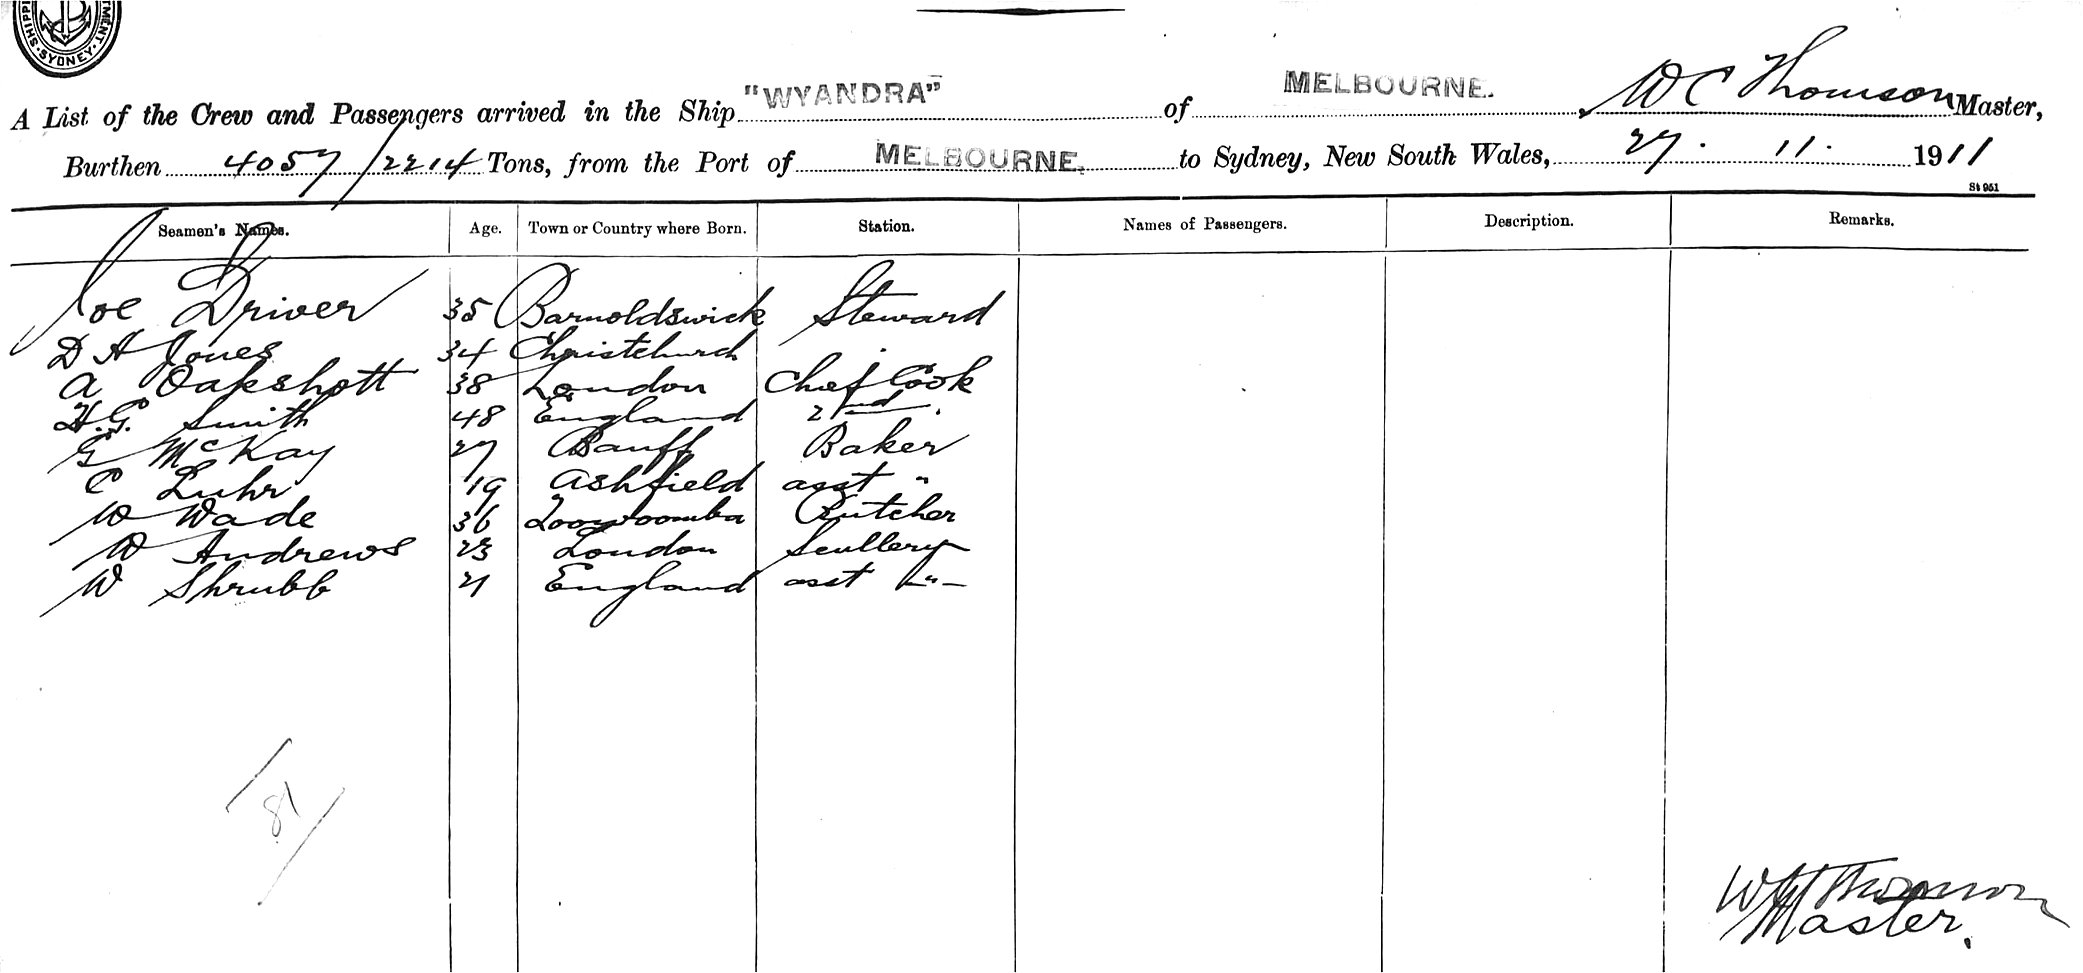 SHIPPI
TMENT
SYDNEY
A List of the Crew and Passengers arrived in the Ship "WYANDRA" of MELBOURNE. W C Thomson Master,
Burthen 4057/2214 Tons, from the Port of MELBOURNE. to Sydney, New South Wales, 27. 11. 1911
St 951
Seamen's Names. Age. Town or Country where Born. Station. Names of Passengers. Description. Remarks.
Joe Driver 35 Barnoldswick Steward
D H Jones 34 Christchurch "
A Oakshott 38 London Chief Cook
H.G. Smith 48 England 2nd "
G McKay 27 Banff Baker
C Luhr 19 Ashfield asst "
W Wade 36 Toowoomba Butcher
W Andrews 23 London Scullery
W Shrubb 21 England asst -"-
81
W C Thomson
Master.